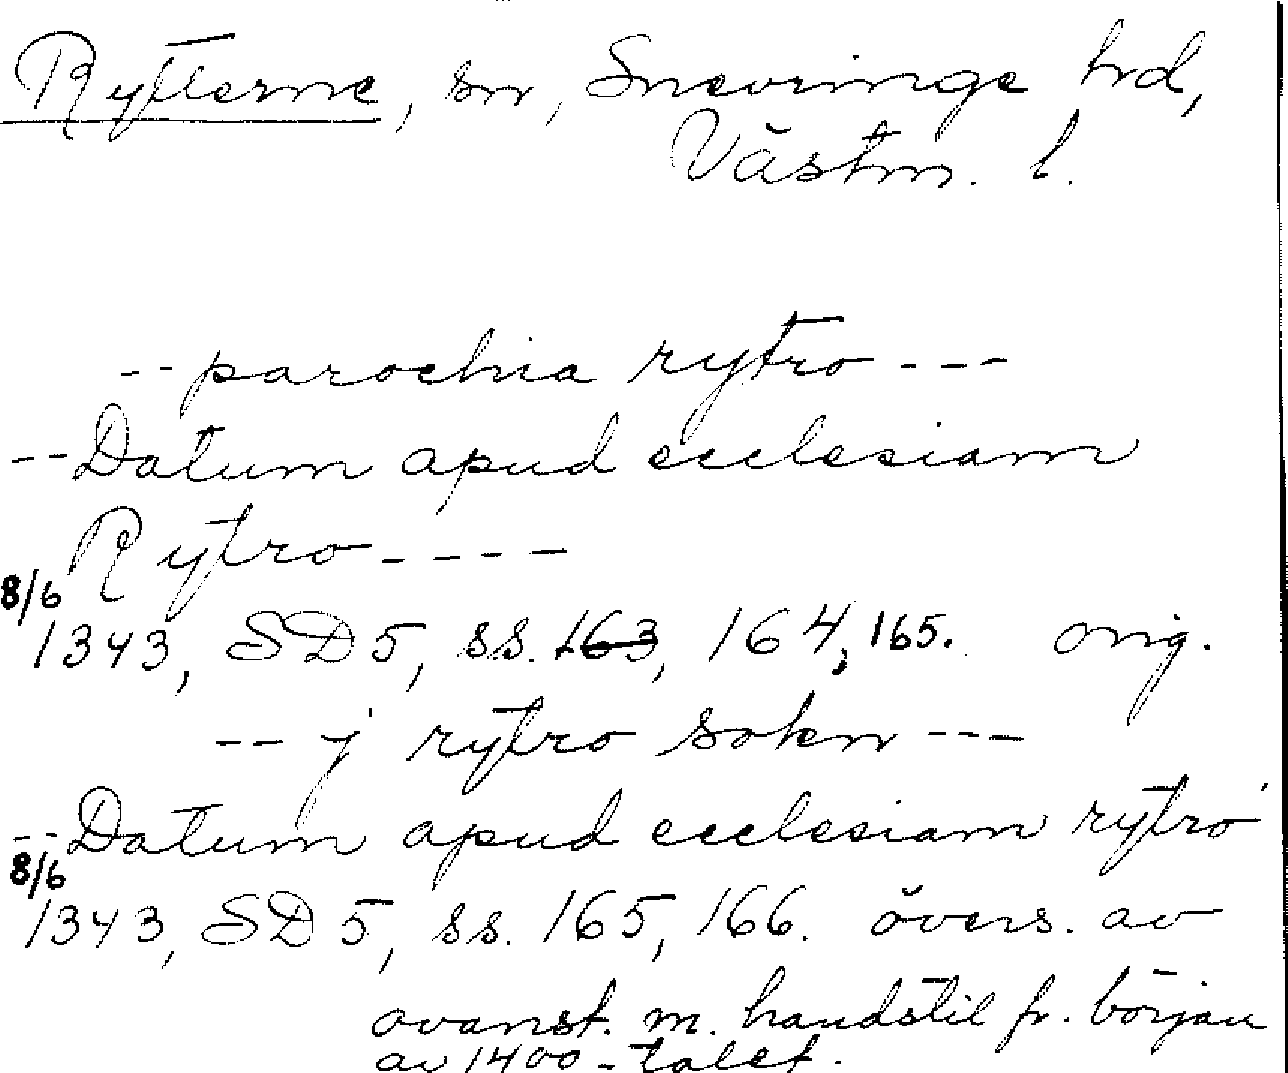 Rytterne, sn, Snevringe hd,
Västm. l.
-- parochia rytro ---
-- Datum apud ecclesiam
Rytro ----
8/6
1343, SD 5, ss. 163, 164, 165. orig.
-- j rytro sokn ---
-- Datum apud ecclesiam rytro
8/6
1343, SD 5, ss. 165, 166. övers. av
ovanst. m. handstil fr. början
av 1400-talet.